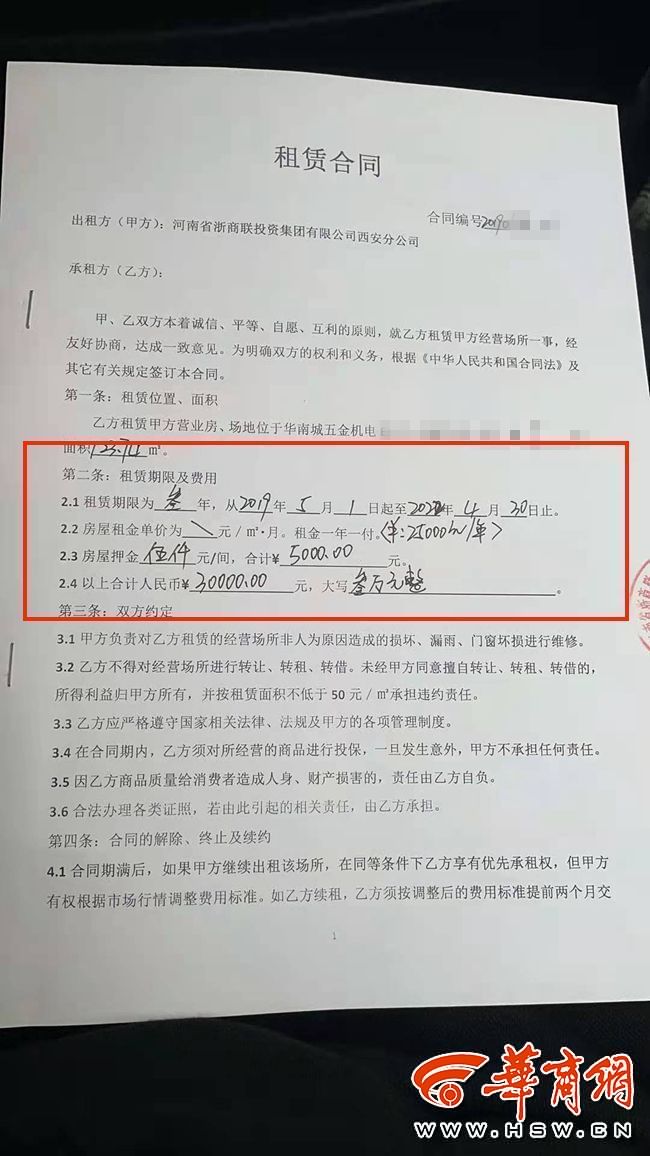 租赁合同
合同编号2019
出租方（甲方）：河南省浙商联投资集团有限公司西安分公司
承租方（乙方）：
甲、乙双方本着诚信、平等、自愿、互利的原则，就乙方租赁甲方经营场所一事，经
友好协商，达成一致意见。为明确双方的权利和义务，根据《中华人民共和国合同法》及
其它有关规定签订本合同。
第一条：租赁位置、面积
乙方租赁甲方营业房、场地位于华南城五金机电
面积123.74㎡。
第二条：租赁期限及费用
2.1 租赁期限为 叁 年，从2019年 5 月 1 日起至2022年 4 月 30日止。
2.2 房屋租金单价为 \ 元/㎡·月。租金一年一付。(¥:25000元/年)
2.3 房屋押金 伍仟 元/间，合计¥ 5000.00 元。
2.4 以上合计人民币¥ 30000.00 元，大写 叁万元整 。
第三条：双方约定
3.1 甲方负责对乙方租赁的经营场所非人为原因造成的损坏、漏雨、门窗坏损进行维修。
3.2 乙方不得对经营场所进行转让、转租、转借。未经甲方同意擅自转让、转租、转借的，
所得利益归甲方所有，并按租赁面积不低于 50 元/㎡承担违约责任。
3.3 乙方应严格遵守国家相关法律、法规及甲方的各项管理制度。
3.4 在合同期内，乙方须对所经营的商品进行投保，一旦发生意外，甲方不承担任何责任。
3.5 因乙方商品质量给消费者造成人身、财产损害的，责任由乙方自负。
3.6 合法办理各类证照，若由此引起的相关责任，由乙方承担。
第四条：合同的解除、终止及续约
4.1 合同期满后，如果甲方继续出租该场所，在同等条件下乙方享有优先承租权，但甲方
有权根据市场行情调整费用标准。如乙方续租，乙方须按调整后的费用标准提前两个月交
1
华商网
WWW.HSW.CN